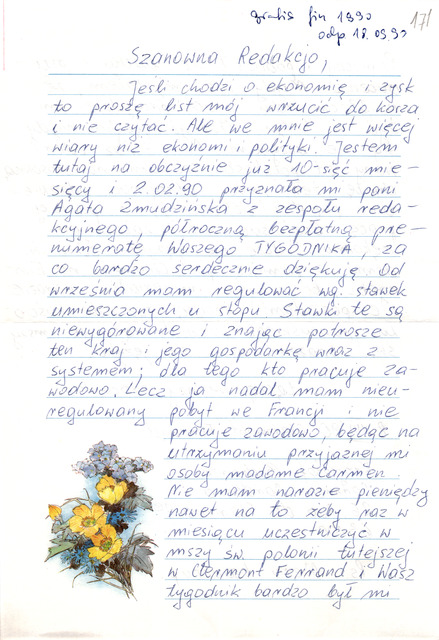 gratis fin 1990
odp 18.09.90
171
Szanowna Redakcjo,
Jeśli chodzi o ekonomię i zysk
to proszę list mój wrzucić do kosza
i nie czytać. Ale we mnie jest więcej
wiary niż ekonomi i polityki. Jestem
tutaj na obczyźnie już 10-sięć mie-
sięcy i 2.02.90 przyznała mi pani
Agata Żmudzińska z zespołu reda-
kcyjnego, półroczną bezpłatną pre-
numeratę Waszego TYGODNIKA, za
co bardzo serdecznie dziękuję. Od
września mam regulować wg. stawek
umieszczonych u stopu. Stawki te są
niewygórowane i znając potrosze
ten kraj i jego gospodarkę wraz z
systemem; dla tego kto pracuje za-
wodowo. Lecz ja nadal mam nieu-
regulowany pobyt we Francji i nie
pracuje zawodowo, będąc na
utrzymaniu przyjaznej mi
osoby madame Carmen.
Nie mam narazie pieniędzy
nawet na to żeby raz w
miesiącu uczestniczyć w
mszy św. polonii tutejszej
w Clermont Ferrand i Wasz
tygodnik bardzo był mi